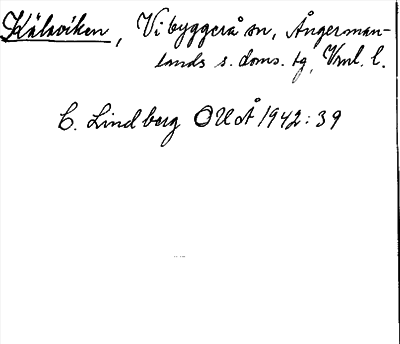 Kälsviken, Vibyggerå sn, Ångerman-
lands s. doms. tg, Vnrl. l.
C. Lindberg OUÅ 1942:39